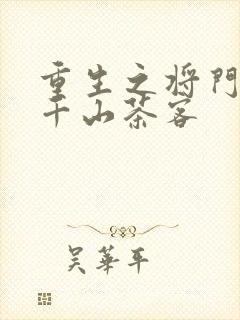 重生之将门
千山茶客
吴华平